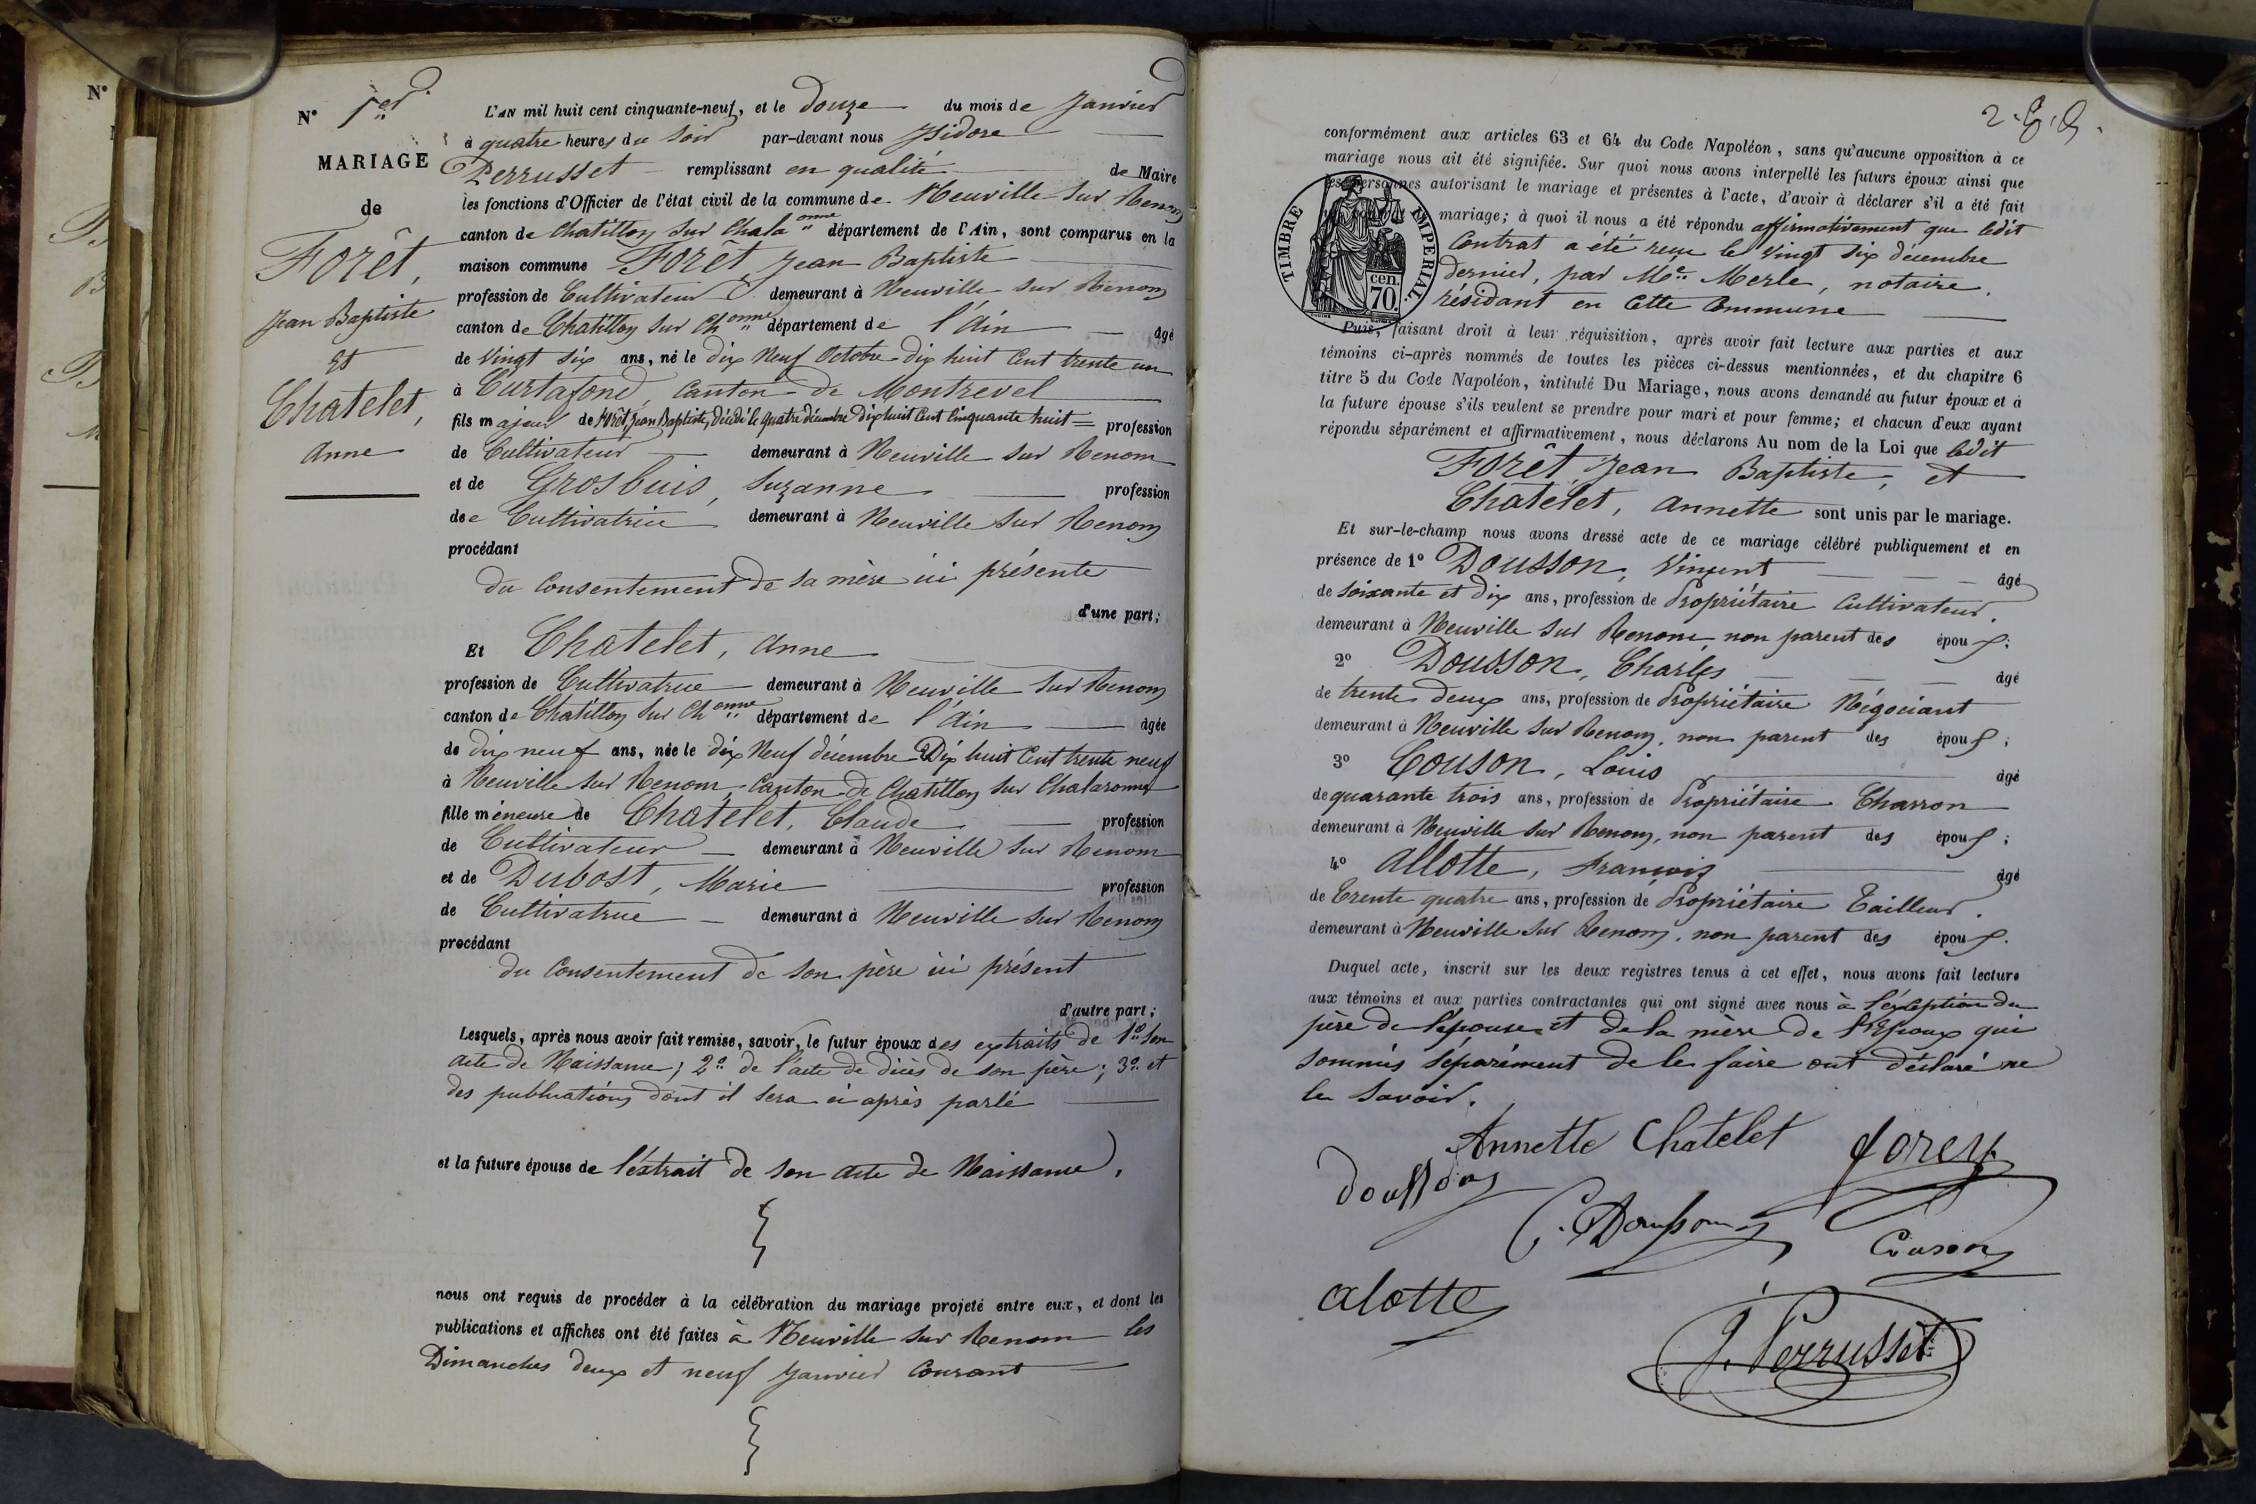 N° 1er
MARIAGE
de
Forêt,
Jean Baptiste
et
Chatelet,
Anne
L'AN mil huit cent cinquante-neuf, et le douze du mois de Janvier
à quatre heures du soir par-devant nous Isidore
Perrusset remplissant en qualité de Maire
les fonctions d'Officier de l'état civil de la commune de Neuville sur Renom
canton de Chatillon sur Chalaonne département de l'Ain, sont comparus en la
maison commune Forêt, Jean Baptiste
profession de Cultivateur demeurant à Neuville sur Renom
canton de Chatillon sur Chonne département de l'Ain âgé
de vingt six ans, né le dix neuf Octobre dix huit cent trente un
à Curtafond, canton de Montrevel
fils majeur de Forêt, Jean Baptiste, décédé le quatre décembre dix huit cent cinquante huit profession
de Cultivateur demeurant à Neuville sur Renom
et de Grosbuis, Suzanne profession
de Cultivatrice demeurant à Neuville sur Renom
procédant
du consentement de sa mère ici présente
d'une part;
Et Chatelet, Anne
profession de Cultivatrice demeurant à Neuville sur Renom
canton de Chatillon sur Chonne département de l'Ain âgée
de dix neuf ans, née le dix neuf décembre Dix huit cent trente neuf
à Neuville sur Renom canton de Chatillon sur Chalaronne
fille mineure de Chatelet, Claude profession
de Cultivateur demeurant à Neuville sur Renom
et de Dubost, Marie profession
de Cultivatrice demeurant à Neuville sur Renom
procédant
du consentement de son père ici présent
d'autre part;
Lesquels, après nous avoir fait remise, savoir, le futur époux des extraits de 1° son
acte de Naissance; 2° de l'acte de décès de son père; 3° et
des publications dont il sera ci après parlé
et la future épouse de l'extrait de son acte de Naissance,
nous ont requis de procéder à la célébration du mariage projeté entre eux, et dont les
publications et affiches ont été faites à Neuville sur Renom les
Dimanches deux et neuf Janvier courant
2.
conformément aux articles 63 et 64 du Code Napoléon, sans qu'aucune opposition à ce
mariage nous ait été signifiée. Sur quoi nous avons interpellé les futurs époux ainsi que
les personnes autorisant le mariage et présentes à l'acte, d'avoir à déclarer s'il a été fait
mariage; à quoi il nous a été répondu affirmativement que ledit
TIMBRE IMPERIAL.
cen.
70.
Contrat a été reçu le vingt six décembre
dernier, par Me Merle, notaire,
résidant en cette Commune
Puis, faisant droit à leur réquisition, après avoir fait lecture aux parties et aux
témoins ci-après nommés de toutes les pièces ci-dessus mentionnées, et du chapitre 6
titre 5 du Code Napoléon, intitulé Du Mariage, nous avons demandé au futur époux et à
la future épouse s'ils veulent se prendre pour mari et pour femme; et chacun d'eux ayant
répondu séparément et affirmativement, nous déclarons Au nom de la Loi que ledit
Forêt, Jean Baptiste, et
Chatelet, Annette sont unis par le mariage.
Et sur-le-champ nous avons dressé acte de ce mariage célébré publiquement et en
présence de 1° Dousson, Vincent âgé
de soixante et dix ans, profession de Propriétaire Cultivateur,
demeurant à Neuville sur Renom, non parent des époux;
2° Dousson, Charles âgé
de trente deux ans, profession de Propriétaire Négociant
demeurant à Neuville sur Renom, non parent des époux;
3° Couson, Louis âgé
de quarante trois ans, profession de Propriétaire Charron
demeurant à Neuville sur Renom, non parent des époux;
4° Allotte, François âgé
de Trente quatre ans, profession de Propriétaire Tailleur,
demeurant à Neuville sur Renom, non parent des époux.
Duquel acte, inscrit sur les deux registres tenus à cet effet, nous avons fait lecture
aux témoins et aux parties contractantes qui ont signé avec nous à l'éxception du
père de l'épouse et de la mère de l'Epoux qui
sommés séparément de le faire ont déclaré ne
le savoir.
Annette Chatelet forey
dousson
C. Dousson
Couson
alotte
J. Perrusset